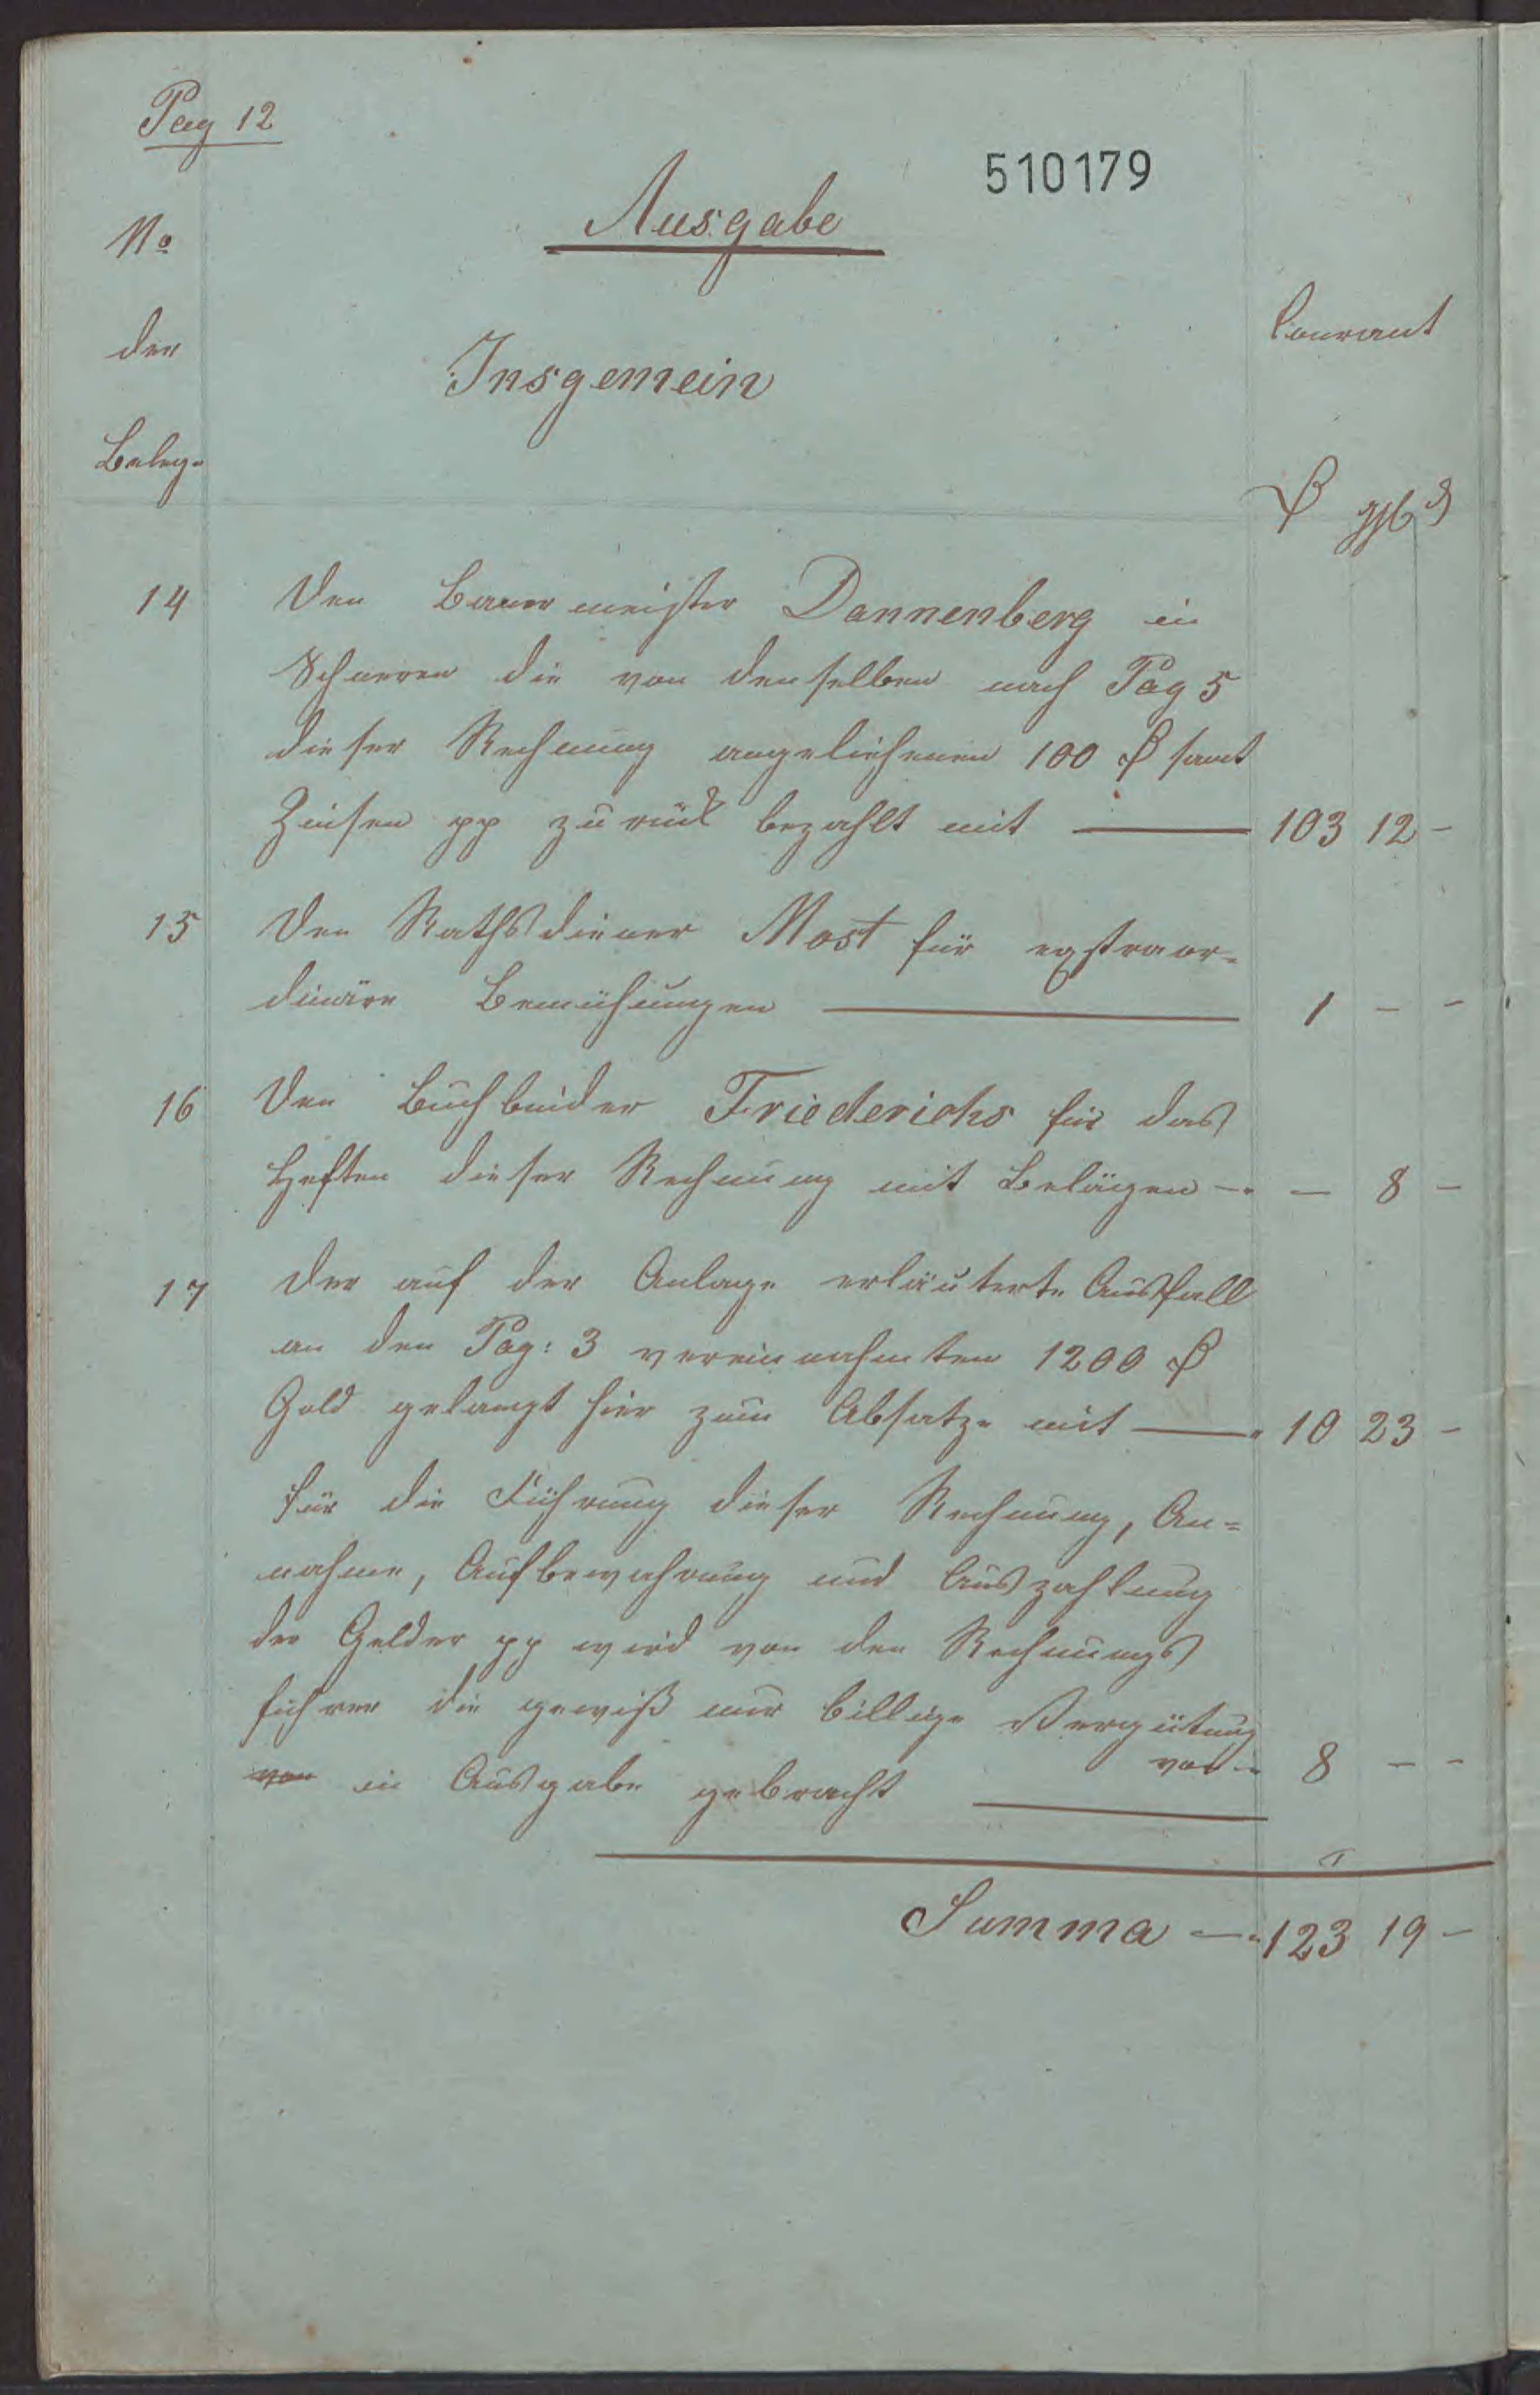 Pag 12
510179
Ausgabe
No
der
Insgemein
Courant
Beleg.
ggl ₰
14 Den Bauermeister Dannenberg in
die von denselben nach Pag 5
dieser Rechnung angeliehenen 100 ₰ samt
Zinsen pp zurück bezahlt mit — 103 12 -
15 Den Rathsdiener Most für extraor=
dinäre Bemühungen — 1 - -
16 Den Buchbinder Friederichs für das
Heften dieser Rechnung mit Belägen — - 8 -
17 Der auf der Anlage erläuterte Ausfall
an den Pag: 3 vereinnahmten 1200 ₰
Gold gelangt hier zum Absatze mit — 10 23 -
Für die Führung dieser Rechnung, An=
nahme, Aufbewahrung und Auszahlung
der Gelder pp wird von den Rechnungs
führer die gewiß nur billige Vergütung
von - 8 - -
von in Ausgabe gebracht —
Summa — 123 19 -